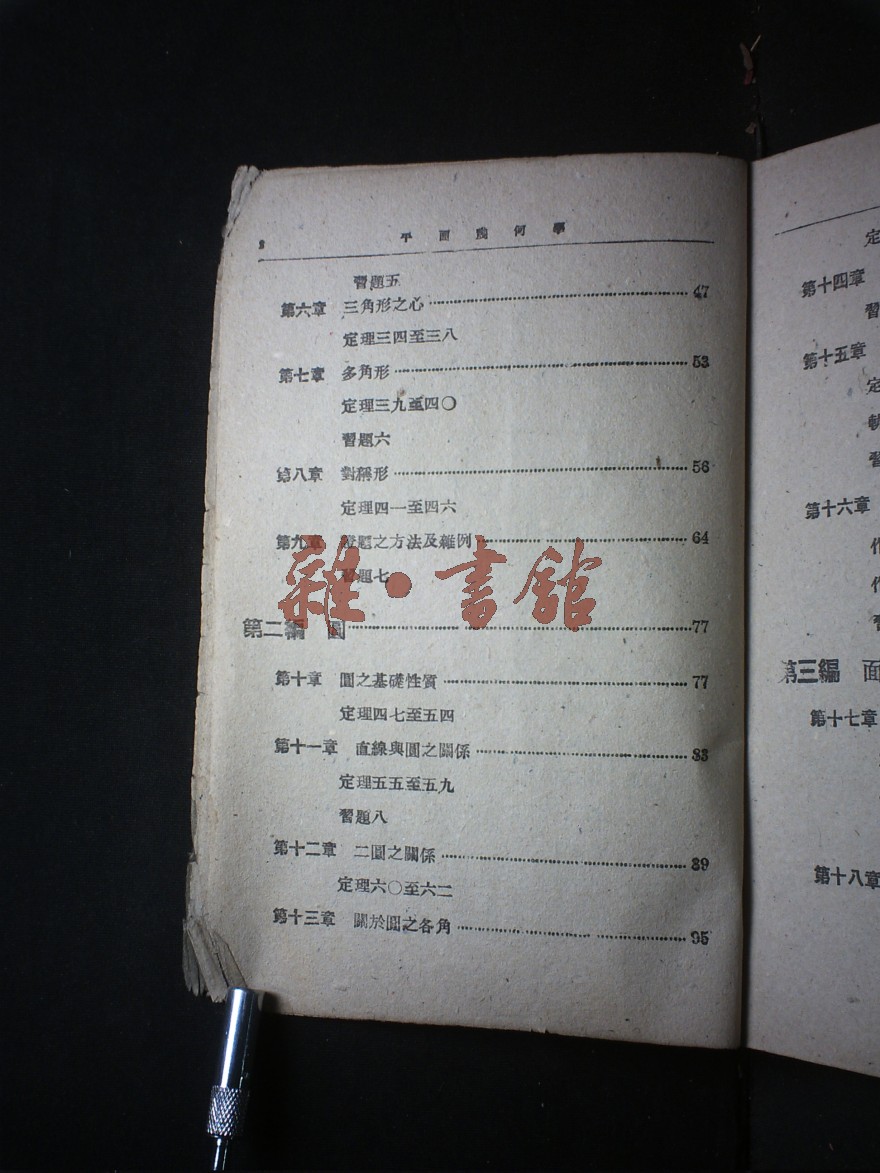 2 平面幾何學
習題五
第六章 三角形之心 47
定理三四至三八
第七章 多角形 53
定理三九至四〇
習題六
第八章 對稱形 56
定理四一至四六
第九章 證題之方法及雜例 64
習題七
雜·書館
第二編 圓 77
第十章 圓之基礎性質 77
定理四七至五四
第十一章 直線與圓之關係 83
定理五五至五九
習題八
第十二章 二圓之關係 89
定理六〇至六二
第十三章 關於圓之各角 95
定
第十四章
習
第十五章
定
軌
習
第十六章
作
作
習
第三編 面
第十七章
第十八章